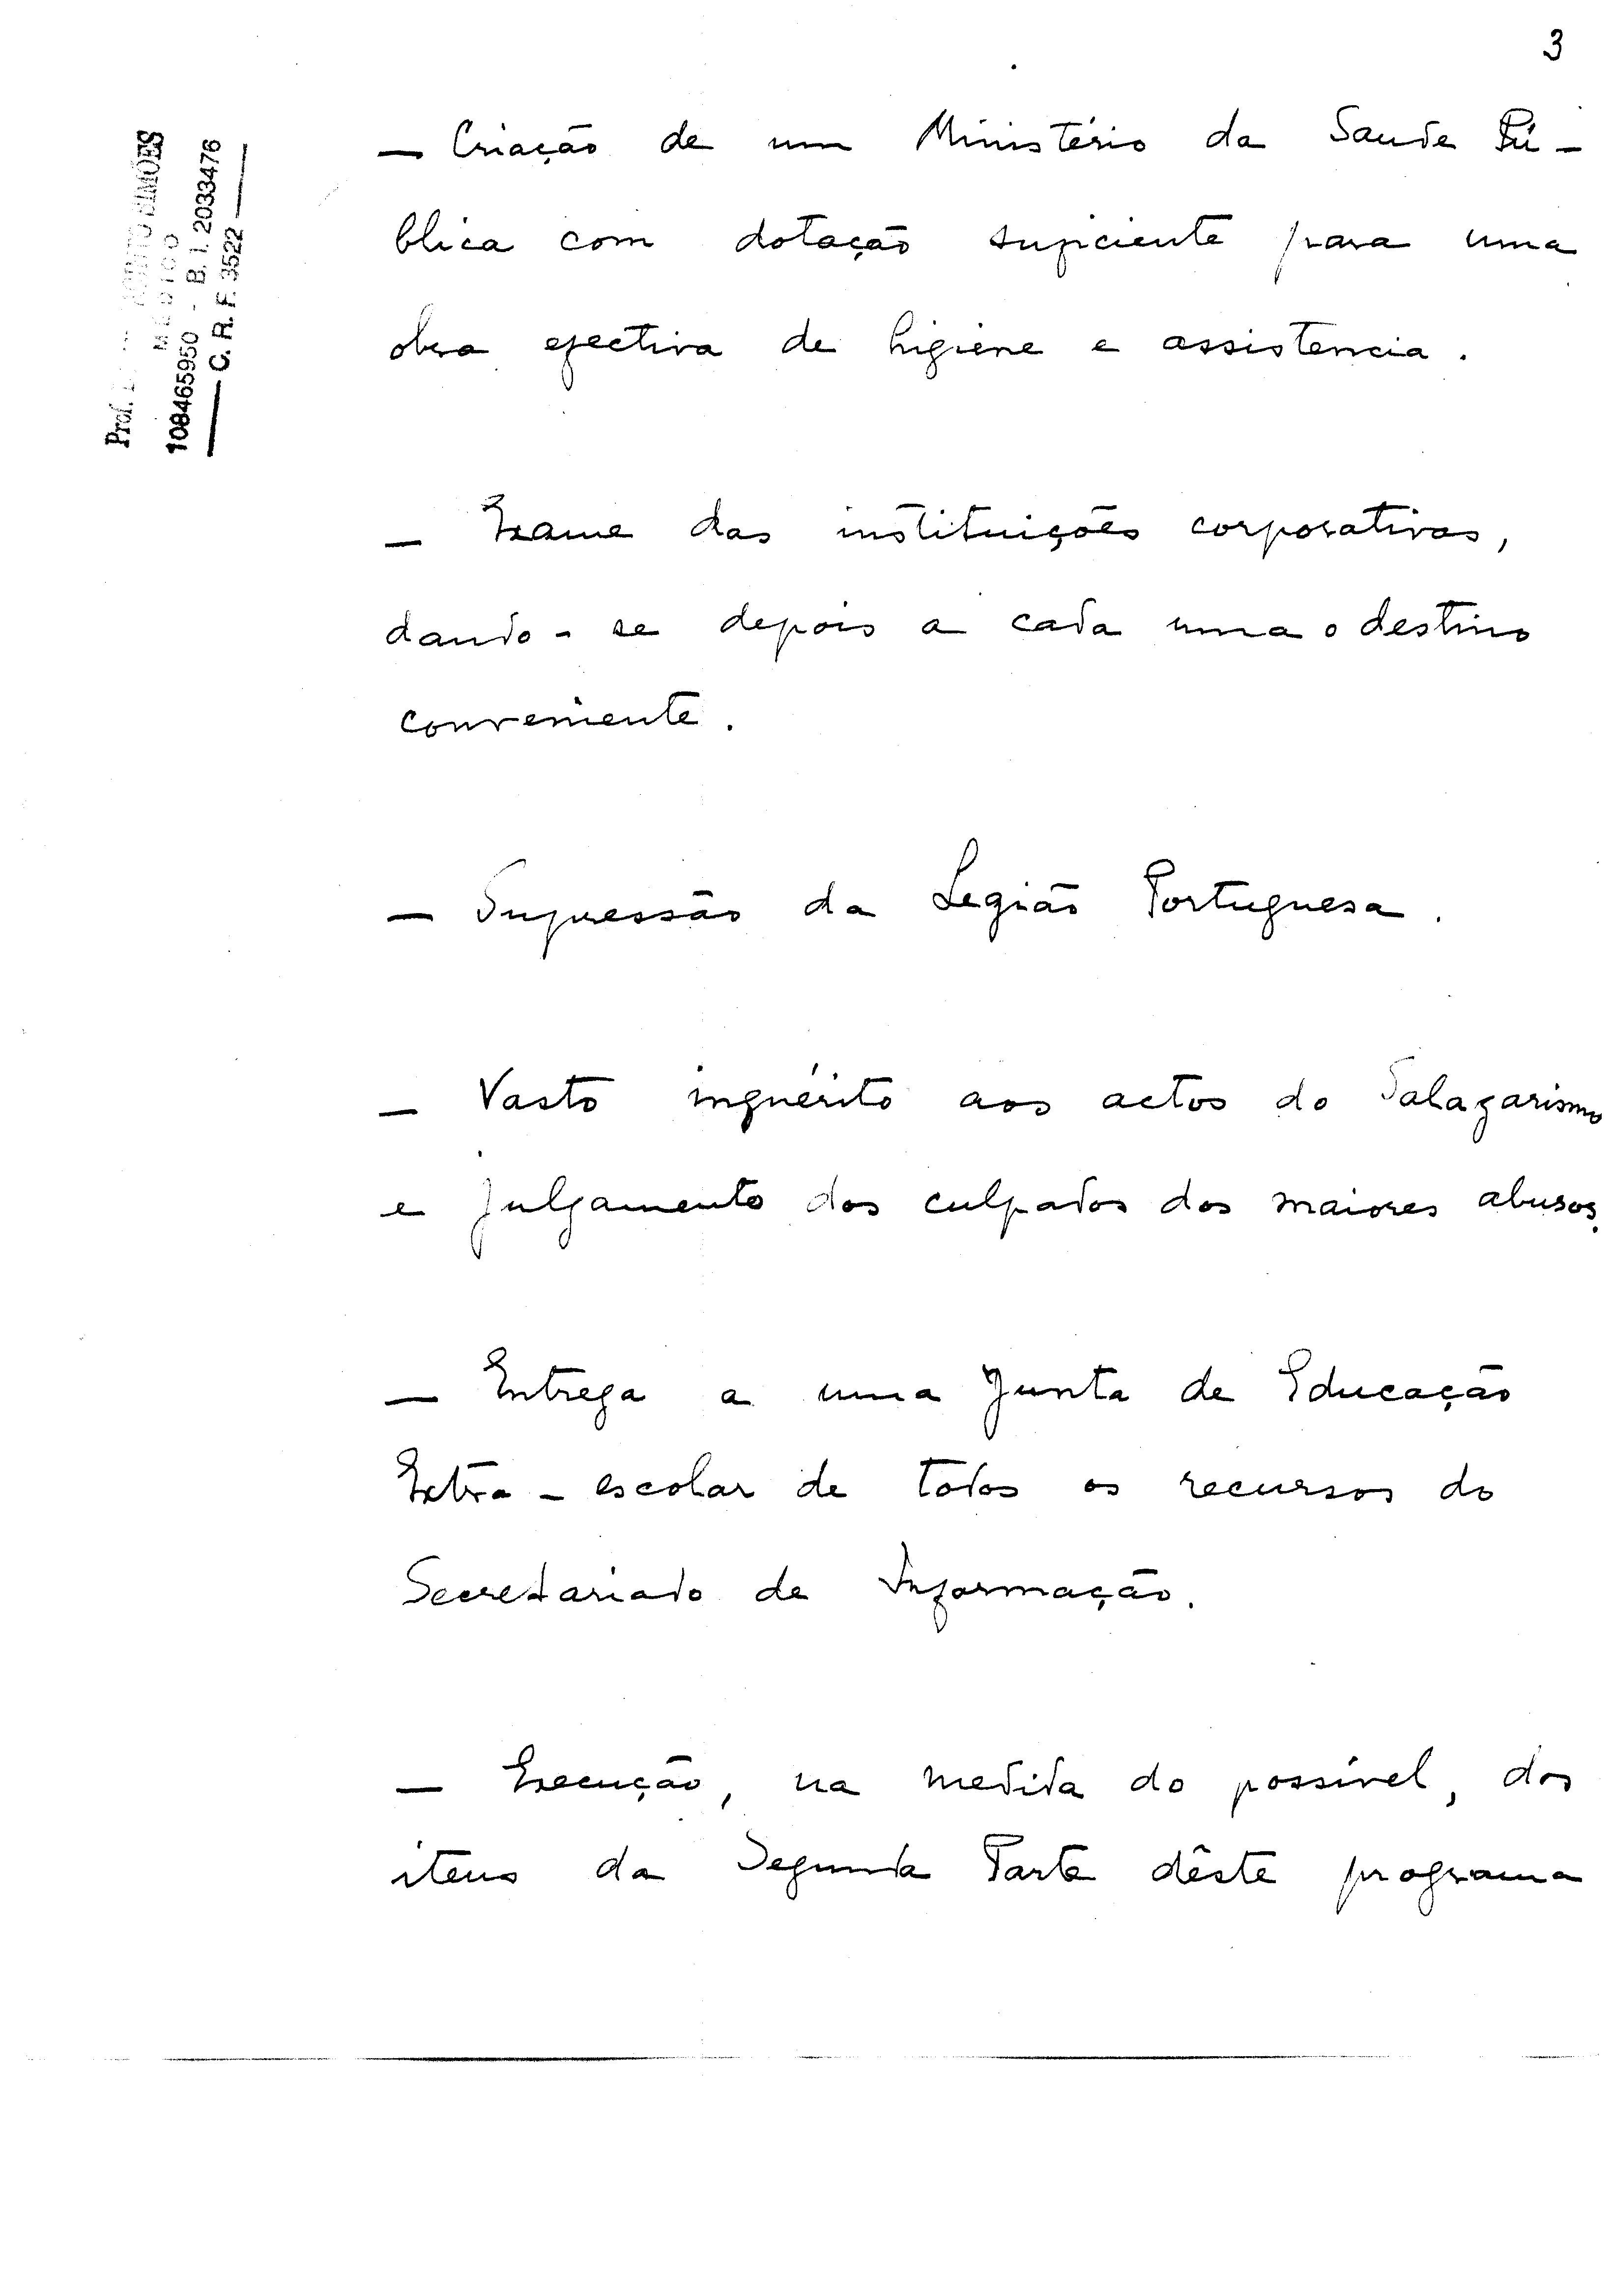 3
— Criação de um Ministério da Saude Pú-
blica com dotação suficiente para uma
obra efectiva de higiene e assistencia.
— Exame das instituições corporativas,
dando-se depois a cada uma o destino
conveniente.
— Supressão da Legião Portuguesa.
— Vasto inquérito aos actos do Salazarismo
e julgamento dos culpados dos maiores abusos.
— Entrega a uma Junta de Educação
Extra-escolar de todos os recursos do
Secretariado de Informação.
— Execução, na medida do possível, dos
itens da Segunda Parte dêste programa
Prof. SIMÕES
MÉDICO
108465950 - B. I. 2033476
— C. R. F. 3522 —